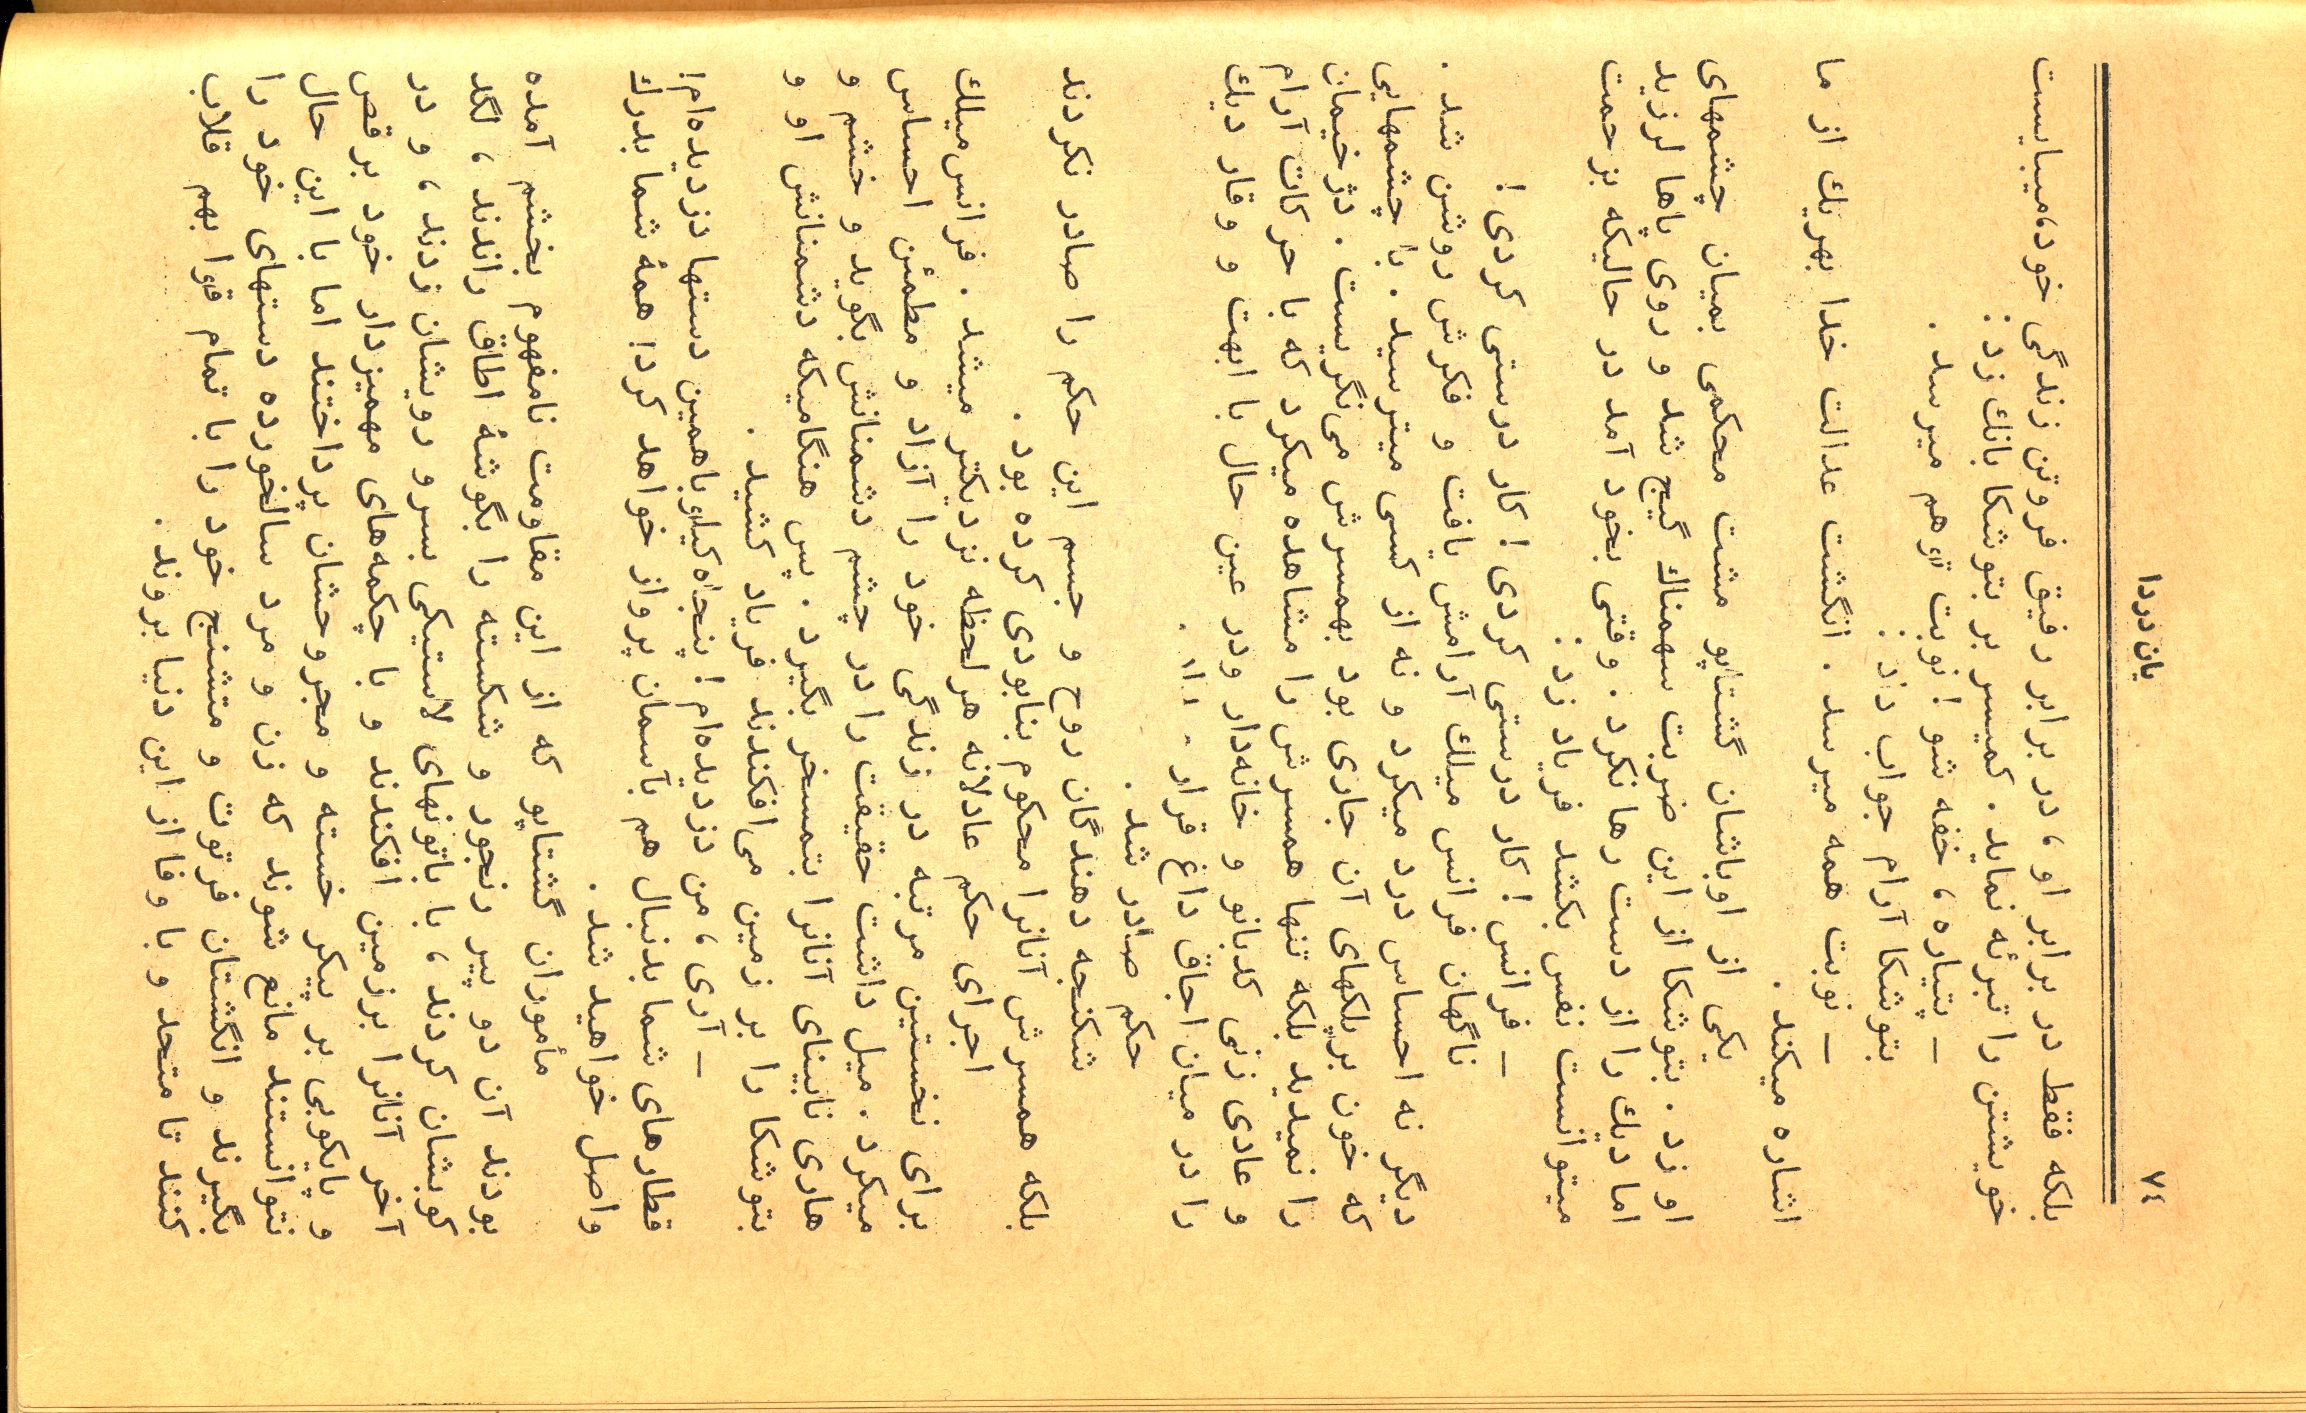 ۷٤
یان دردا
بلکه فقط در برابر او، در برابر رفیق فروتن زندگی خود، میبایست
خویشتن را تبرئه نماید. کمیسر بر بتوشکا بانك زد:
– پتیاره، خفه شو! نوبت توهم میرسد.
بتوشکا آرام جواب داد:
– نوبت همه میرسد. انگشت عدالت خدا بهریك از ما
اشاره میکند.
یکی از اوباشان گشتاپو مشت محکمی بمیان چشمهای
او زد. بتوشکا از این ضربت سهمناك گیج شد و روی پاها لرزید
اما دیك را از دست رها نکرد. وقتی بخود آمد در حالیکه بزحمت
میتوانست نفس بکشد فریاد زد:
– فرانس! کار درستی کردی! کار درستی کردی!
ناگهان فرانس میلك آرامش یافت و فکرش روشن شد.
دیگر نه احساس درد میکرد و نه از کسی میترسید. با چشمهایی
که خون برپلکهای آن جاری بود بهمسرش می‌نگریست. دژخیمان
را نمیدید بلکه تنها همسرش را مشاهده میکرد که با حرکات آرام
و عادی زنی کدبانو و خانه‌دار ودر عین حال با ابهت و وقار دیك
را در میان اجاق داغ قرار
حکم صادر شد.
شکنجه دهندگان روح و جسم این حکم را صادر نکردند
بلکه همسرش آنانرا محکوم بنابودی کرده بود.
اجرای حکم عادلانه هر لحظه نزدیکتر میشد. فرانس‌میلك
برای نخستین مرتبه در زندگی خود را آزاد و مطمئن احساس
میکرد. میل داشت حقیقت را در چشم دشمنانش بگوید و خشم و
هاری نابینای آنانرا بتمسخر بگیرد. پس هنگامیکه دشمنانش او و
بتوشکا را بر زمین می‌افکندند فریاد کشید.
– آری، من دزدیده‌ام! پنجاه کیلو باهمین دستها دزدیده‌ام!
قطارهای شما بدنبال هم بآسمان پرواز خواهد کرد! همهٔ شما بدرك
واصل خواهید شد.
مأموران گشتاپو که از این مقاومت نامفهوم بخشم آمده
بودند آن دو پیر رنجور و شکسته را بگوشهٔ اطاق راندند، لگد
کوبشان کردند، با باتونهای لاستیکی بسرو رویشان زدند، و در
آخر آنانرا برزمین افکندند و با چکمه‌های مهمیزدار خود برقص
و پایکوبی بر پیکر خسته و مجروحشان پرداختند اما با این حال
نتوانستند مانع شوند که زن و مرد سالخورده دستهای خود را
بگیرند و انگشتان فرتوت و متشنج خود را با تمام قوا بهم قلاب
کنند تا متحد و با وفا از این دنیا بروند.